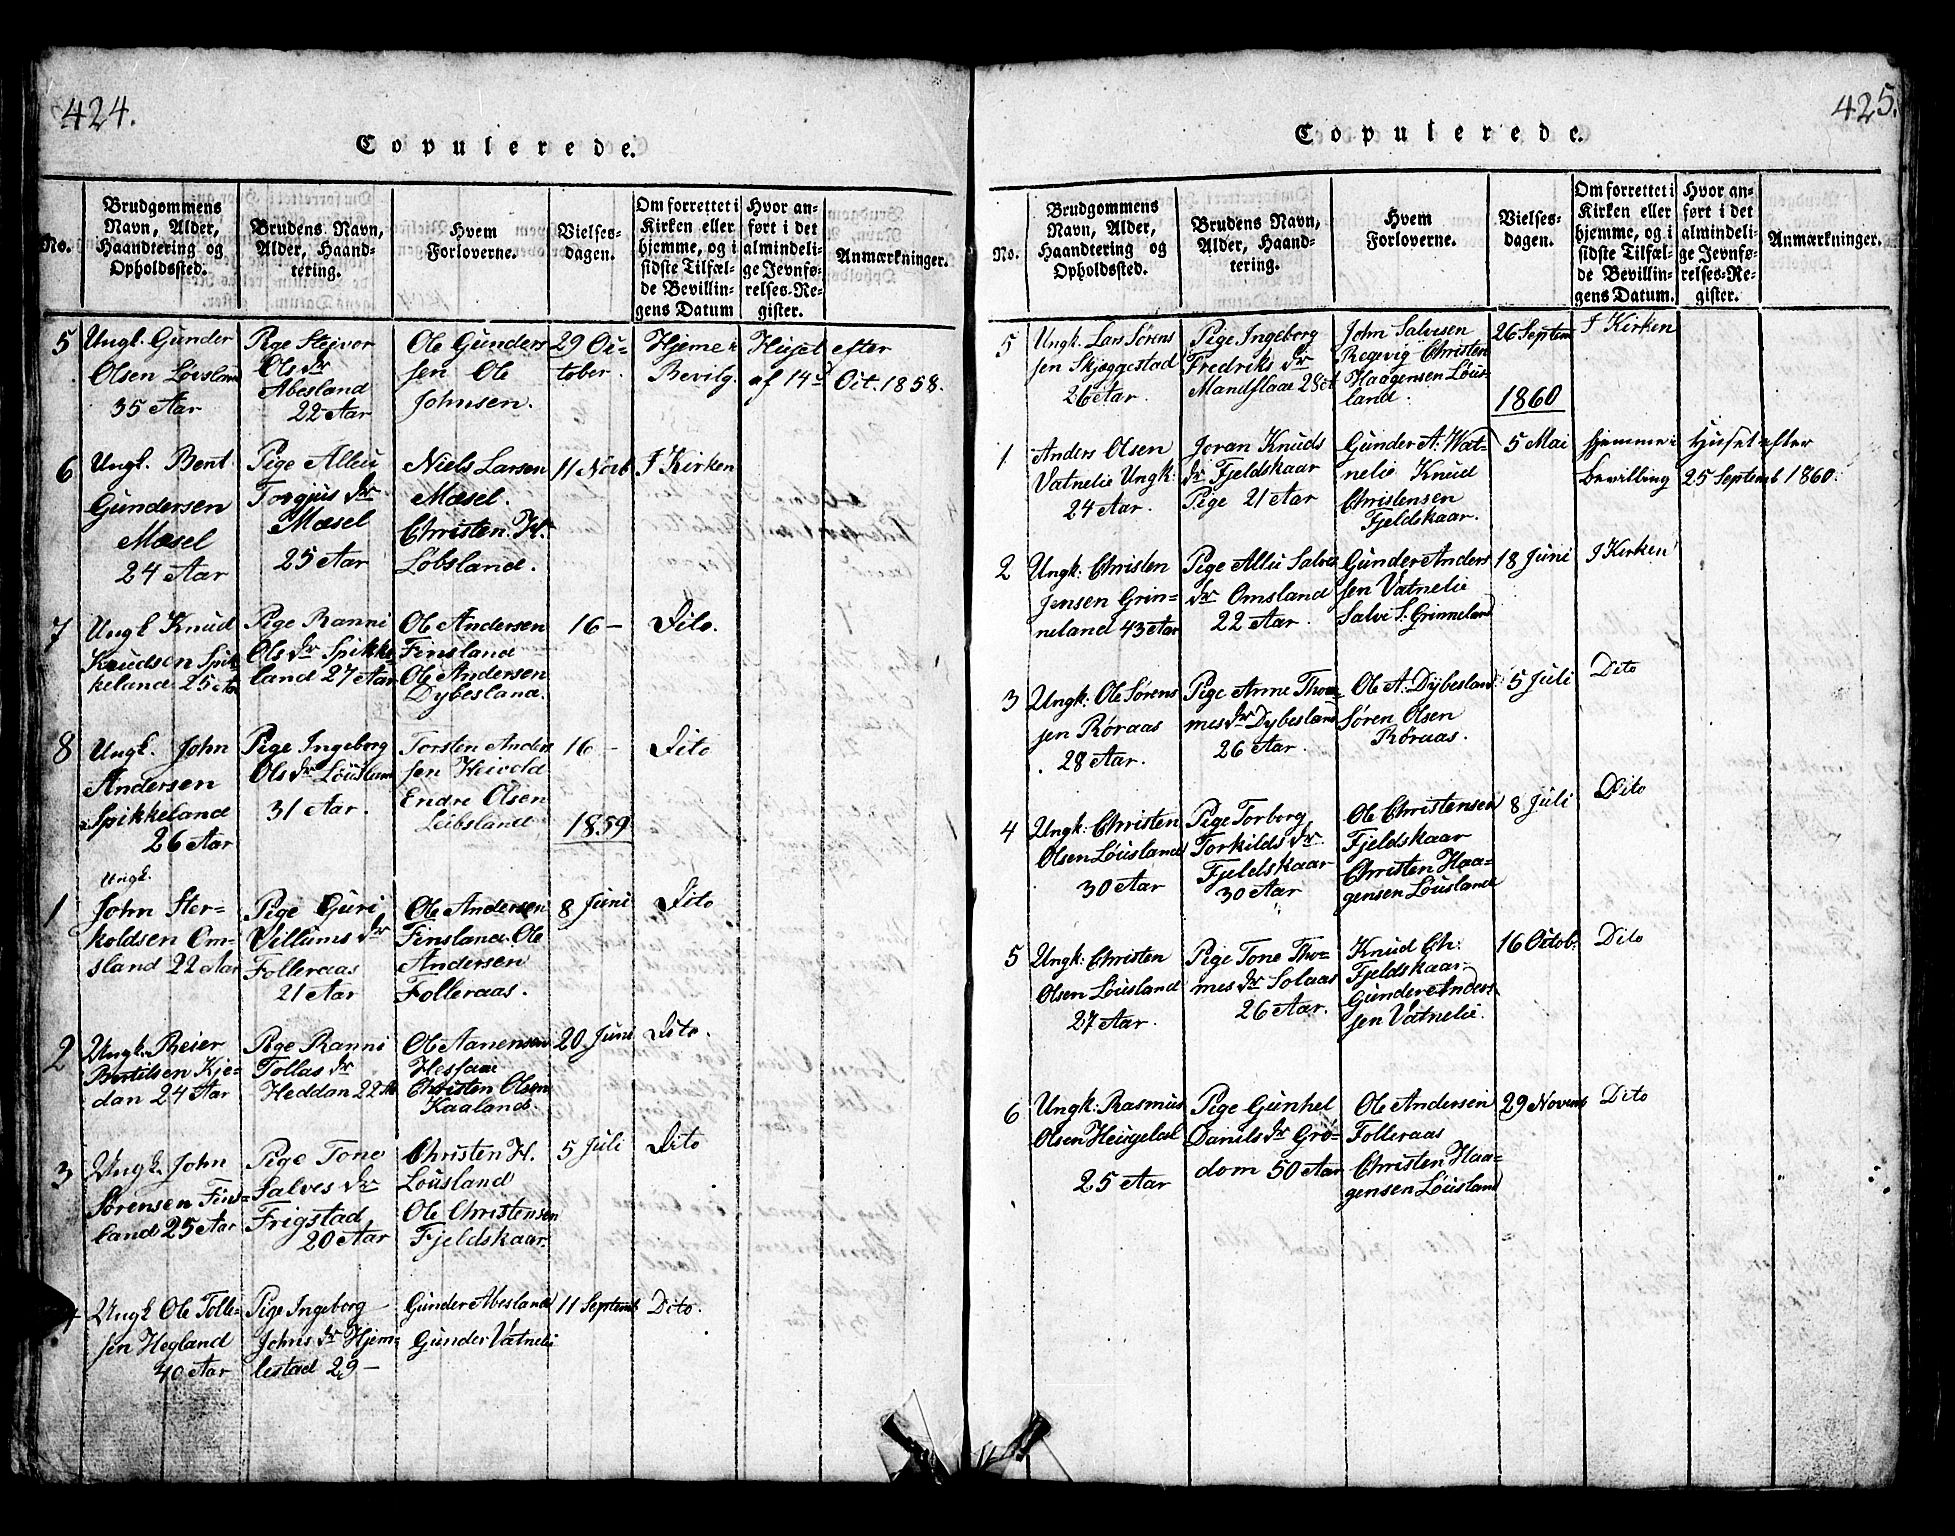 424.
Copulerede.
No.
Brudgommens
Navn, Alder,
Haandtering og
Opholdssted.
Brudens Navn,
Alder, Haand-
tering.
Hvem
Forloverne.
Vielses-
dagen.
Om forrettet i
Kirken eller
hjemme, og i
sidste Tilfæl-
de Bevillin-
gens Datum
Hvor an-
ført i det
almindeli-
ge Jevnfø-
relses-Re-
gister.
Anmærkninger.
5
Ungk. Gunder
Olsen Løvsland
35 Aar
Pige Stejvor
Ols dr
Abesland
22 Aar
Ole Gunder
sen Ole
Johnsen.
29 Oc-
tober.
Hjeme
Bevilg.
Huset
af 14d
efter
Oct. 1858.
6
Ungk. Bent
Gundersen
Mæsel
24 Aar
Pige Alleu
Torgjus dr
Mæsel
25 Aar
Niels Larsen
Mæsel.
Christen H.
Løbsland.
11 Novb
I Kirken
7
Ungk Knud
Knudsen Spik
keland 25 Aar
Pige Ranni
Ols dr Spikke-
land 27 Aar
Ole Andersen
Finsland
Ole Andersen
Dybesland.
16 –
Dito.
8
Ungk. John
Andersen
Spikkeland
26 Aar
Pige Ingeborg
Ols dr Løusland
31 Aar.
Torsten Ander
sen Heivold
Endre Olsen
Leibsland
16 –
Dito
1859
1
Ungk.
John Ster-
koldsen Om-
sland 22 Aar
Pige Guri
Villums dr
Folleraas
21 Aar
Ole Andersen
Finsland Ole
Andersen
Folleraas.
8 Juni
Dito
2
Ungk. Reier
Bertilsen Kje-
dan 24 Aar
Pige Ranni
Tollas dr
Heddan 22 Ar
Ole Aanensen
Hesfaie
Christen Olsen
Kaaland.
20. Juni
Dito.
3
Ungk. John
Sørensen Fins-
land 25 Aar
Pige Tone
Salves dr
Frigstad
20 Aar
Christen H.
Løusland
Ole Christensen
Fjeldskaar.
5 Juli
Dito
4
Ungk Ole Tolle-
sen Hegland
40 Aar
Pige Ingeborg
Johns dr Hjem-
lestad 29 –
Gunder Abesland
Gunder Vatneli
11 Septemb
Dito.
425.
Copulerede.
No.
Brudgommens
Navn, Alder,
Haandtering og
Opholdssted.
Brudens Navn,
Alder, Haand-
tering.
Hvem
Forloverne.
Vielses-
dagen.
Om forrettet i
Kirken eller
hjemme, og i
sidste Tilfæl-
de Bevillin-
gens Datum.
Hvor an-
ført i det
almindeli-
ge Jevnfø-
relses-Re-
gister.
Anmærkninger.
5
Ungk. Lars Sørens
sen Skjæggestad
26 Aar.
Pige Ingeborg
Fredriks dr
Mandflaae 28
John Salvesen
Regevig Christen
Haagensen Løus-
land.
26 Septem
I Kirken
1860
1
Anders Olsen
Vatnelie Ungk:
24 Aar.
Joran Knuds
dr Fjeldskaar
Pige 21 Aar
Gunder A. Vat-
nelie Knud
Christensen
Fjeldskaar.
5 Mai
hjemme
bevilling
Huset efter
25 Septemb 1860.
2
Ungk: Christen
Jensen Grin-
neland 43 Aar
Pige Alleu Salves
dr Omsland
22 Aar.
Gunder Anders
sen Vatnelie
Salve S. Grinneland
18 Juni
I Kirken
3
Ungk: Ole Sørens
sen Røraas
28 Aar.
Pige Anne Tho-
mes dr Dybesland
26 Aar.
Ole A. Dybesland
Søren Olsen
Røraas.
5 Juli
Dito
4
Ungk: Christen
Olsen Løusland
30 Aar
Pige Torborg
Torkilds dr
Fjeldskaar
30 Aar
Ole Christensen
Fjeldskaar
Christen Haa-
gensen Løusland
8 Juli
Dito
5
Ungk: Christen
Olsen Løusland
27 Aar.
Pige Tone Tho-
mes dr Solaas
26 Aar.
Knud Ch:
Fjeldskaar
Gunder Anders
sen Vatnelie.
16 Octob.
Dito
6
Ungk: Rasmus
Olsen
25 Aar
Pige Gunhel
Daniels dr Grø-
dom 50 Aar
Ole Andersen
Folleraas
Christen Haa-
gensen Løusland
29 Novemb
Dito